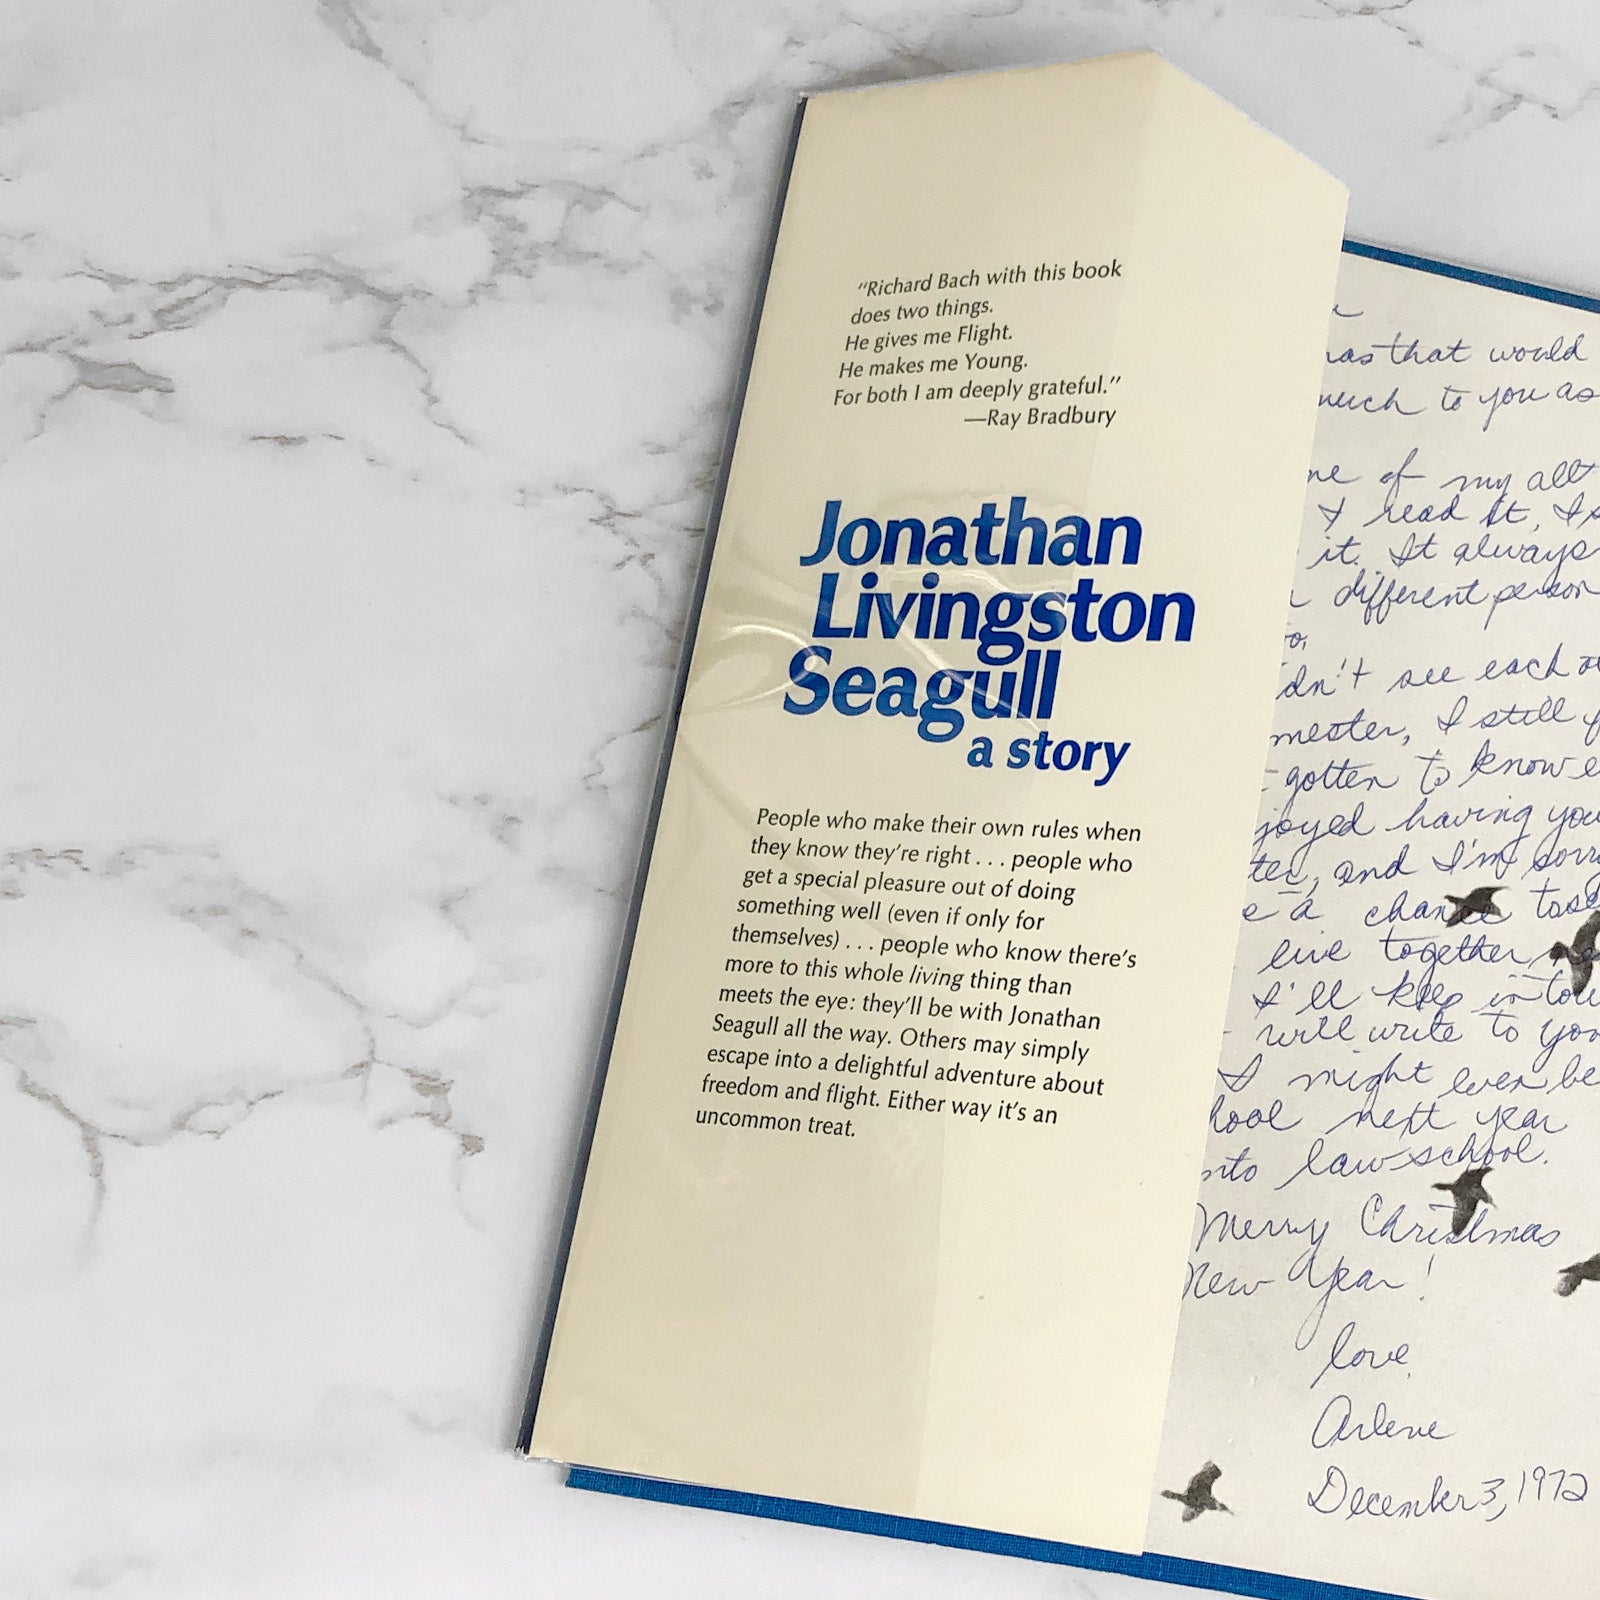 “Richard Bach with this book
does two things.
He gives me Flight.
He makes me Young.
For both I am deeply grateful.”
—Ray Bradbury
Jonathan
Livingston
Seagull
a story
People who make their own rules when
they know they’re right . . . people who
get a special pleasure out of doing
something well (even if only for
themselves) . . . people who know there’s
more to this whole living thing than
meets the eye: they’ll be with Jonathan
Seagull all the way. Others may simply
escape into a delightful adventure about
freedom and flight. Either way it’s an
uncommon treat.
that would
to you as
of my all
I read it, I
it. It always
different person
see each
I still
gotten to know
having you
and I'm sorry
a chance to
live together
I'll keep in
will write to you
I might even be
next year
law school.
Merry Christmas
New Year!
love,
Arlene
December 3, 1972